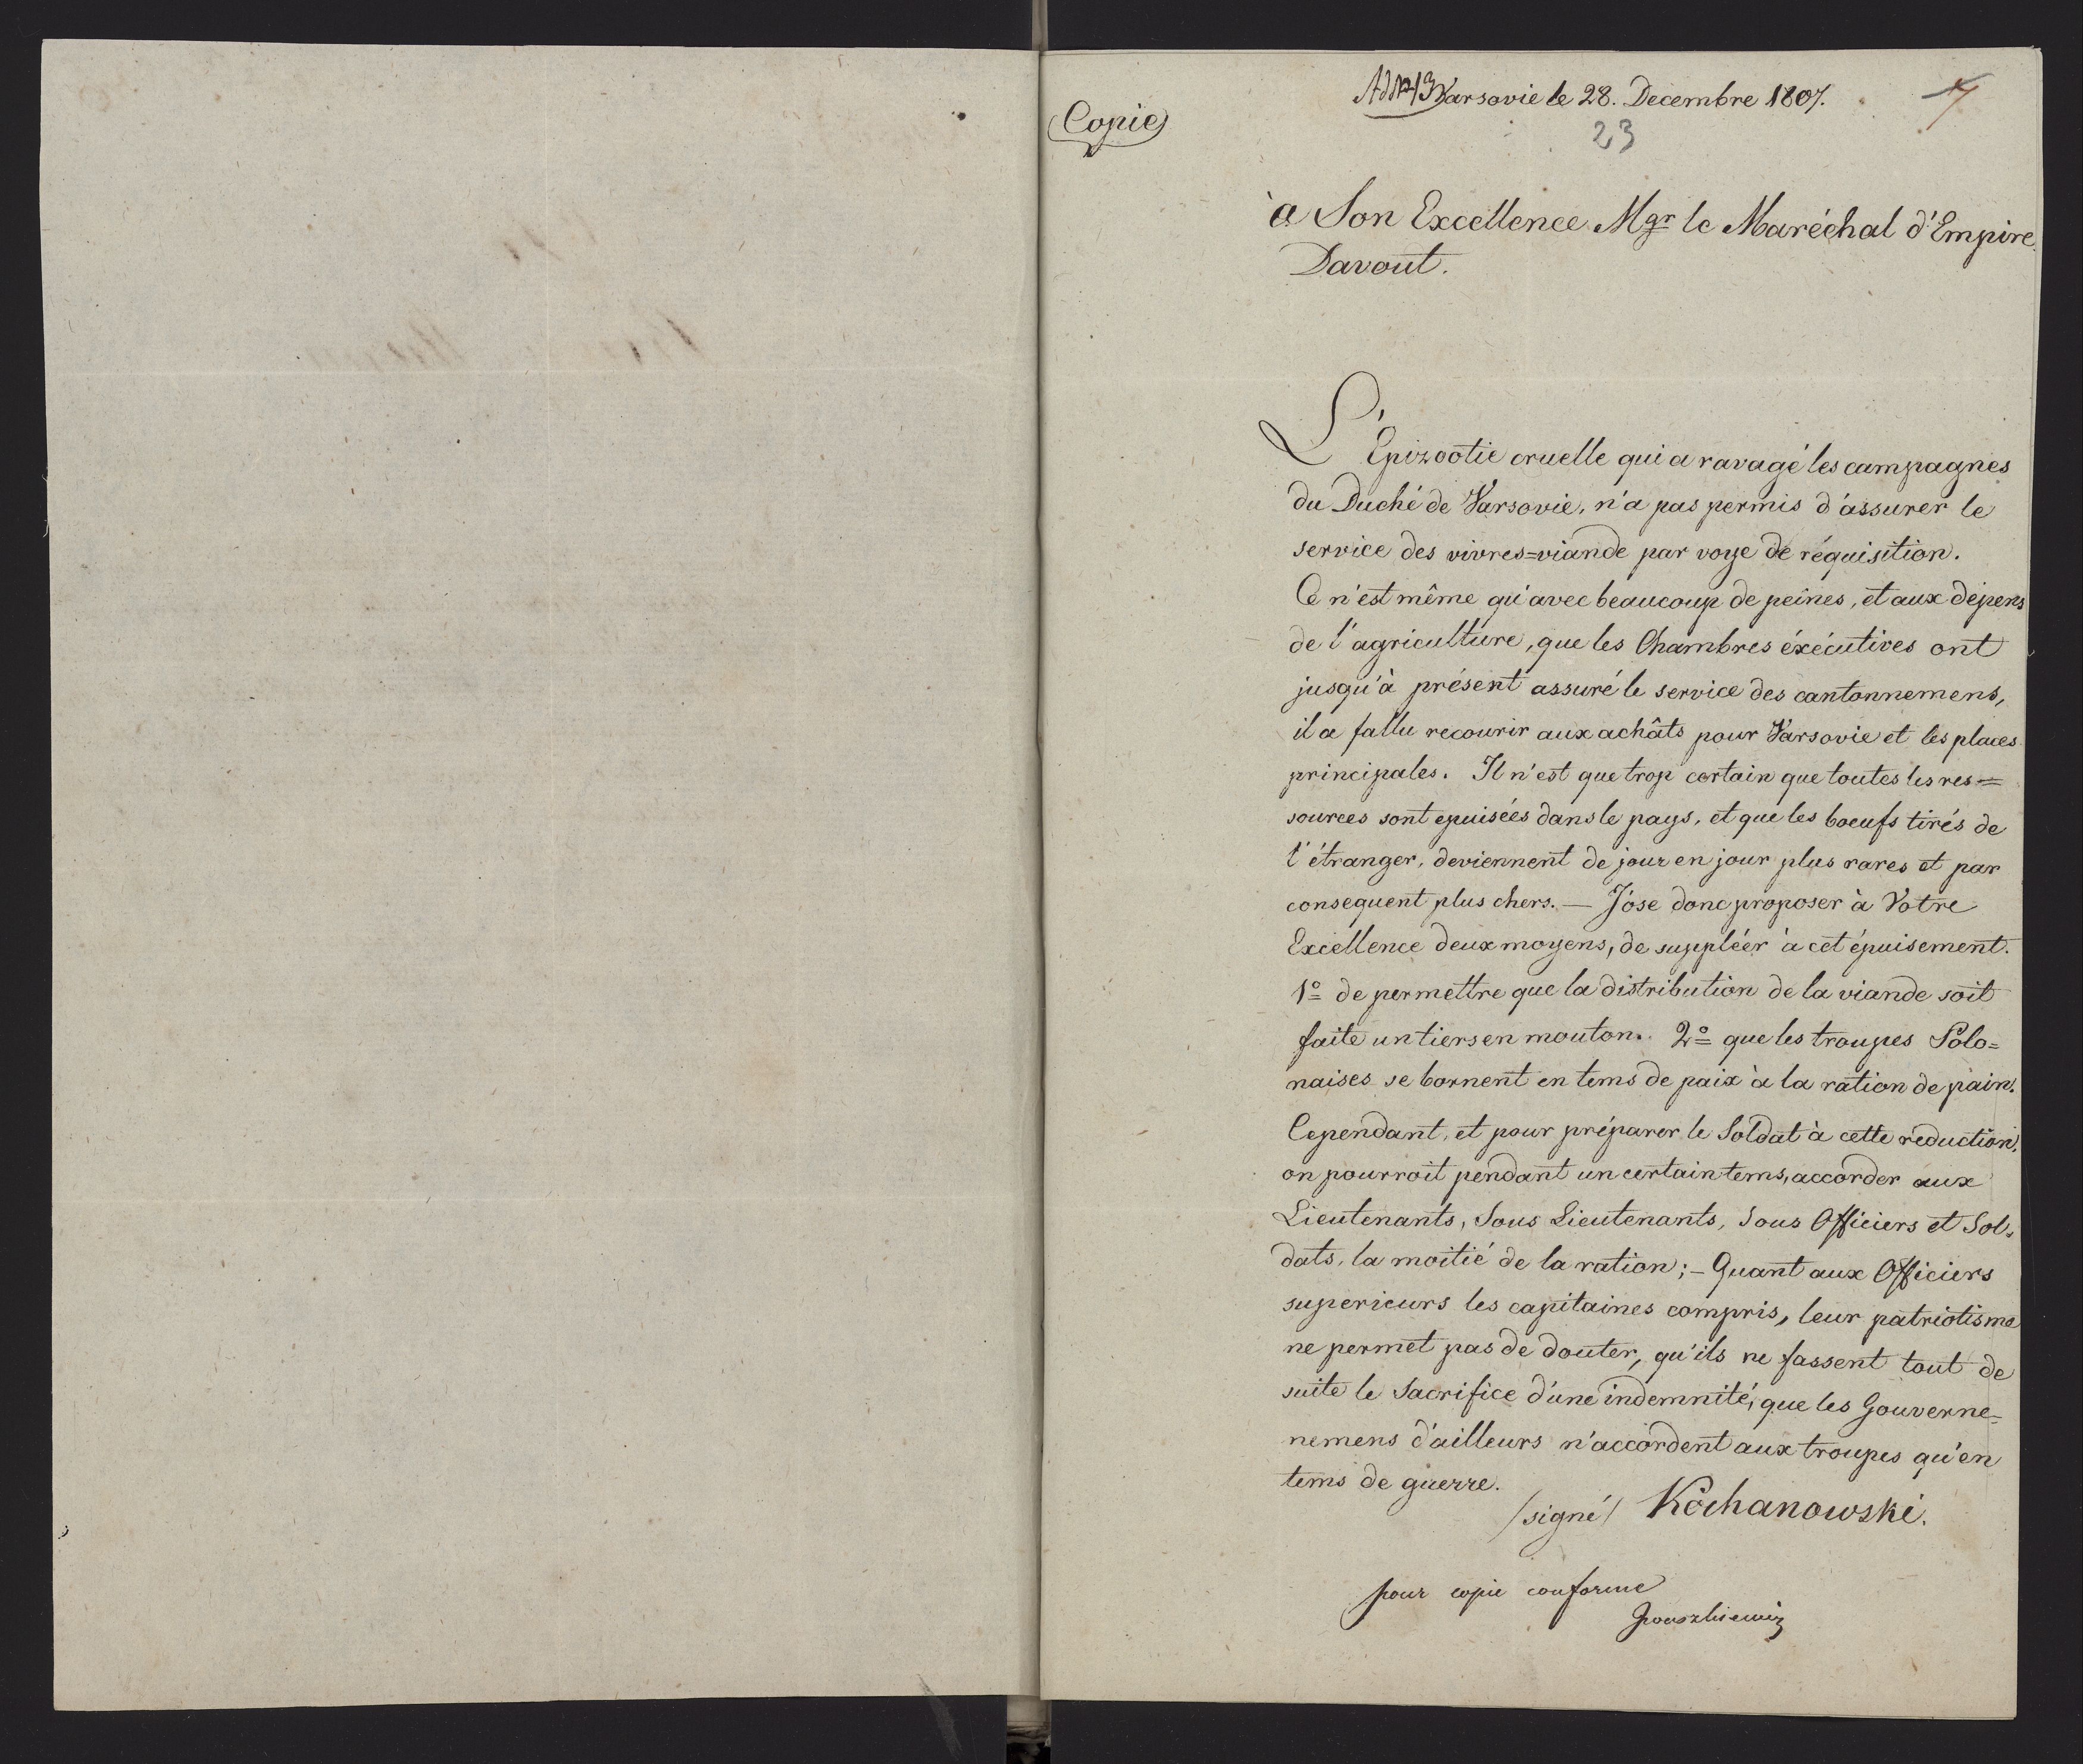 Copie
Varsovie le 28. Decembre 1807.
23
à Son Excellence Mgr le Maréchal d'Empire
Davout.
L'Épizootie cruelle qui a ravagé les campagnes
du Duché de Varsovie, n'a pas permis d'assurer le
service des vivres=viande par voye de réquisition.
Ce n'est même qu'avec beaucoup de peines, et aux dépens
de l'agriculture, que les Chambres éxécutives ont
jusqu'à présent assuré le service des cantonnemens,
il a fallu recourir aux achâts pour Varsovie et les places
principales. Il n'est que trop certain que toutes les res=
sources sont epuisées dans le pays, et que les boeufs tirés de
l'étranger, deviennent de jour en jour plus rares et par
consequent plus chers. — J'ose donc proposer à Votre
Excellence deux moyens, de suppléer à cet épuisement.
1º de permettre que la distribution de la viande soit
faite un tiers en mouton. 2º que les troupes Polo=
naises se bornent en tems de paix à la ration de pain.
Cependant, et pour préparer le Soldat à cette réduction,
on pourroit pendant un certain tems, accorder aux
Lieutenants, Sous Lieutenants, Sous Officiers et Sol=
dats, la moitié de la ration; — Quant aux Officiers
superieurs les capitaines compris, leur patriotisme
ne permet pas de douter, qu'ils ne fassent tout de
suite le Sacrifice d'une indemnité, que les Gouverne=
nemens d'ailleurs n'accordent aux troupes qu'en
tems de guerre.
/signé/ Kochanowski.
pour copie conforme